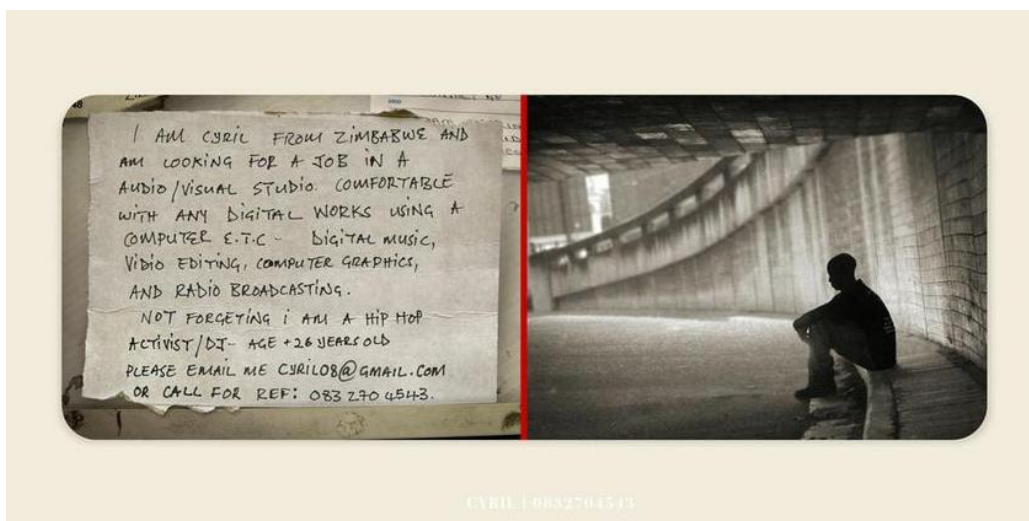 I AM CYRIL FROM ZIMBABWE AND
AM LOOKING FOR A JOB IN A
AUDIO/VISUAL STUDIO. COMFORTABLE
WITH ANY DIGITAL WORKS USING A
COMPUTER E.T.C - DIGITAL MUSIC,
VIDIO EDITING, COMPUTER GRAPHICS,
AND RADIO BROADCASTING.
NOT FORGETING i AM A HIP HOP
ACTIVIST/DJ- AGE +26 YEARS OLD
PLEASE EMAIL ME CYRIL08@GMAIL.COM
OR CALL FOR REF: 083 270 4543.
CYRIL | 0832704543